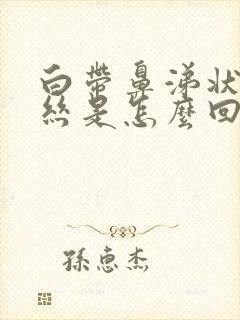 白帶鼻涕狀
絲是怎麼回
孫惠杰